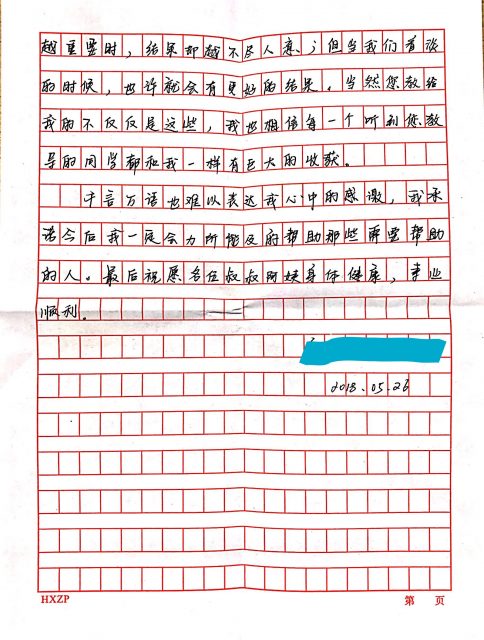 越重要时，结果却越不尽人意；但当我们看淡
的时候，也许就会有更好的结果。当然您教给
我的不仅仅是这些，我也相信每一个听到您教
导的同学都和我一样有巨大的收获。
千言万语也难以表达我心中的感激，我承
诺今后我一定会力所能及的帮助那些需要帮助
的人。最后祝愿各位叔叔阿姨身体健康，事业
顺利。
2018.05.26
HXZP 第 页